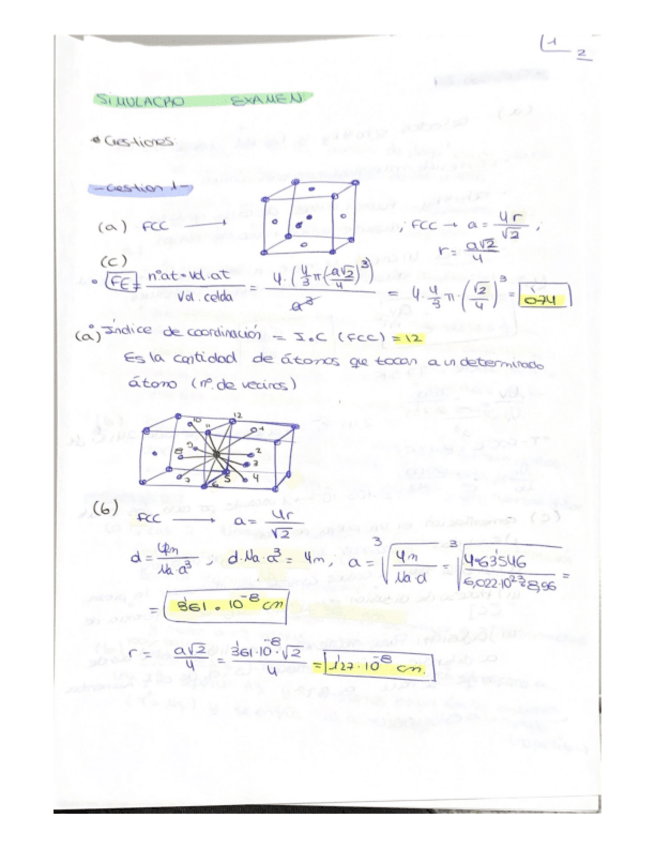 1
2
SIMULACRO EXAMEN
* Cuestiones:
- Cuestion 1 -
(a) FCC → ; FCC → a = 4r/√2 ;
r = a√2/4
(c)
• FE = nºat · Vol.at / Vol. celda = 4·(4/3 π (a√2/4)³) / a³ = 4 · 4/3 π · (√2/4)³ = 0'74
(a) Índice de coordinación = I.C (FCC) = 12
Es la cantidad de átomos que tocan a un determinado
átomo (nº. de vecinos)
10 12 11 1 9 8 2 3 7 5 4 6
(b)
FCC → a = 4r/√2
d = 4m/Na·a³ ; d·Na·a³ = 4m, a = ³√(4m/Na·d) = ³√(4·63'546/6,022·10²³·8,96) =
= 3'61 · 10⁻⁸ cm
r = a√2/4 = 3'61·10⁻⁸·√2/4 = 1'27·10⁻⁸ cm.